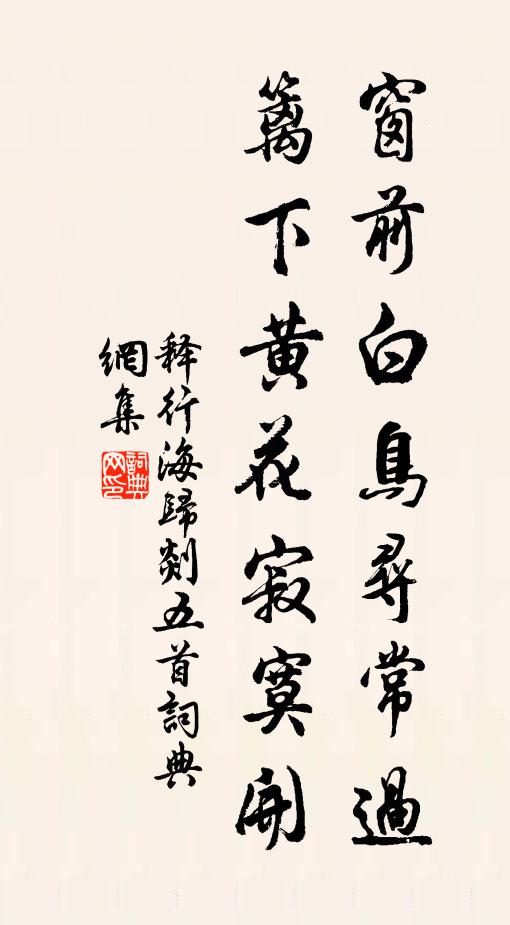 窗前白鳥尋常過
籬下黄花寂寞開
释行海歸剡五首詞典
網集
詞典
网印